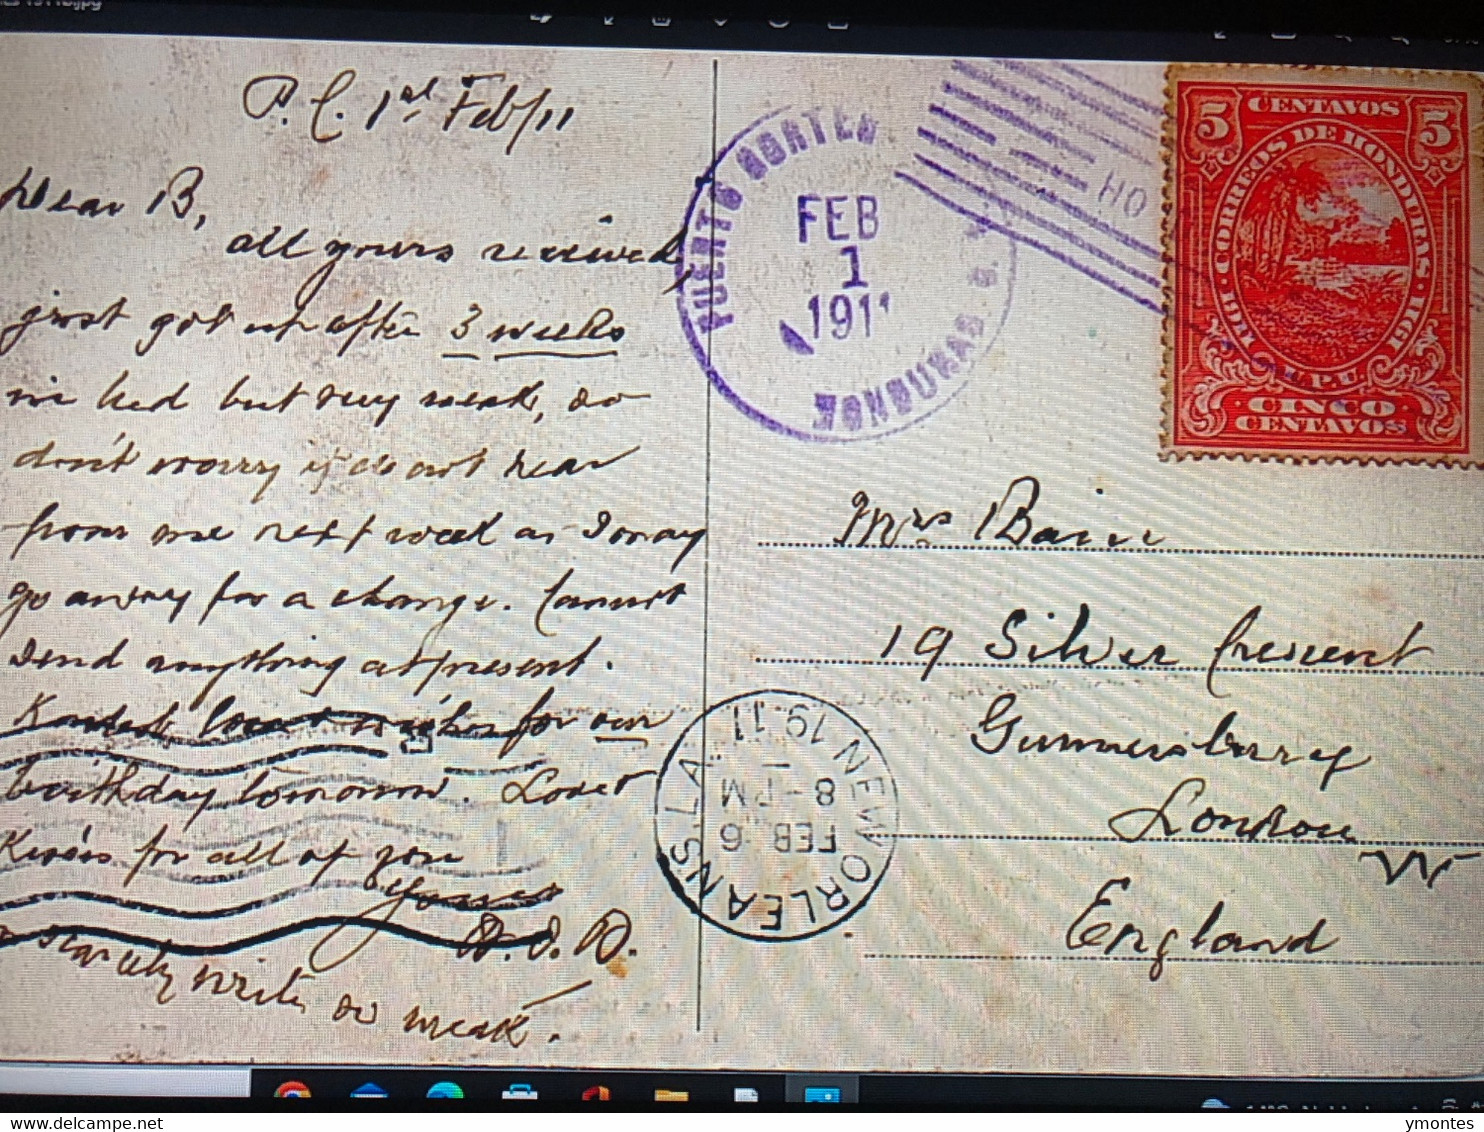 P.C. 1st Feb/11
Dear B,
all yours received,
just got up after 3 weeks
in bed but very weak, so
don't worry if do not hear
from me next week as I may
go away for a change. Cannot
send anything at present.
Kindest love & wishes for our
birthday tomorrow. Love &
Kisses for all of you
Yours
scarcely write so weak.
PUERTO CORTES
FEB
1
1911
HONDURAS
5 CENTAVOS 5
CORREOS DE HONDURAS
U.P.U.
CINCO
CENTAVOS
Mrs Bain
19 Silver Crescent
Gunnersbury
London
W
England
NEW ORLEANS, LA.
FEB 6
8-PM
1911
ymontes